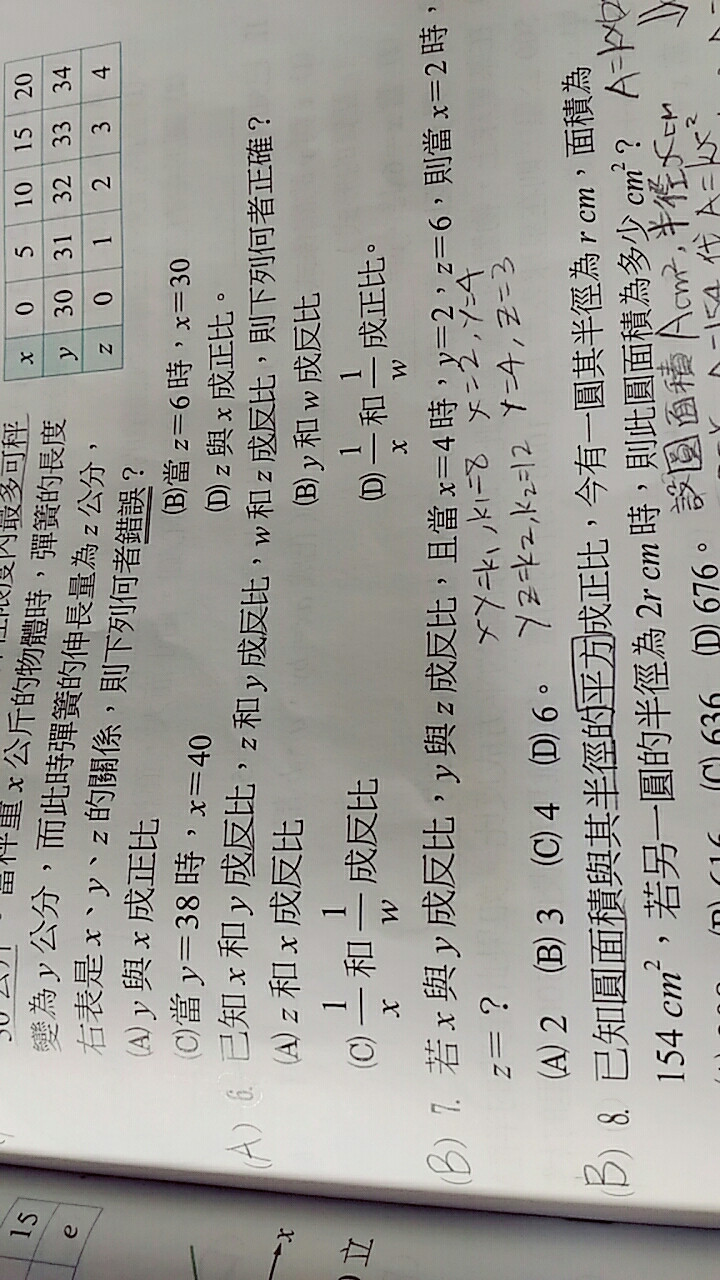 x 0 5 10 15 20
y 30 31 32 33 34
z 0 1 2 3 4
x 公斤的物體時，彈簧的長度
變為 y 公分，而此時彈簧的伸長量為 z 公分，
右表是 x、y、z 的關係，則下列何者錯誤？
(A) y 與 x 成正比 (B)當 z=6 時，x=30
(C)當 y=38 時，x=40 (D) z 與 x 成正比。
(A) 6. 已知 x 和 y 成反比，z 和 y 成反比，w 和 z 成反比，則下列何者正確？
(A) z 和 x 成反比 (B) y 和 w 成反比
(C) 1/x 和 1/w 成反比 (D) 1/x 和 1/w 成正比。
(B) 7. 若 x 與 y 成反比，y 與 z 成反比，且當 x=4 時，y=2，z=6，則當 x=2 時，
z=？
xy=k₁, k₁=8 x=2, y=4
(A) 2 (B) 3 (C) 4 (D) 6。
yz=k₂, k₂=12 y=4, z=3
(B) 8. 已知圓面積與其半徑的平方成正比，今有一圓其半徑為 r cm，面積為
154 cm²，若另一圓的半徑為 2r cm 時，則此圓面積為多少 cm²？
設圓面積 A cm², 半徑 x cm
A=kx²
(C) 636 (D) 676。
15
e
x
立